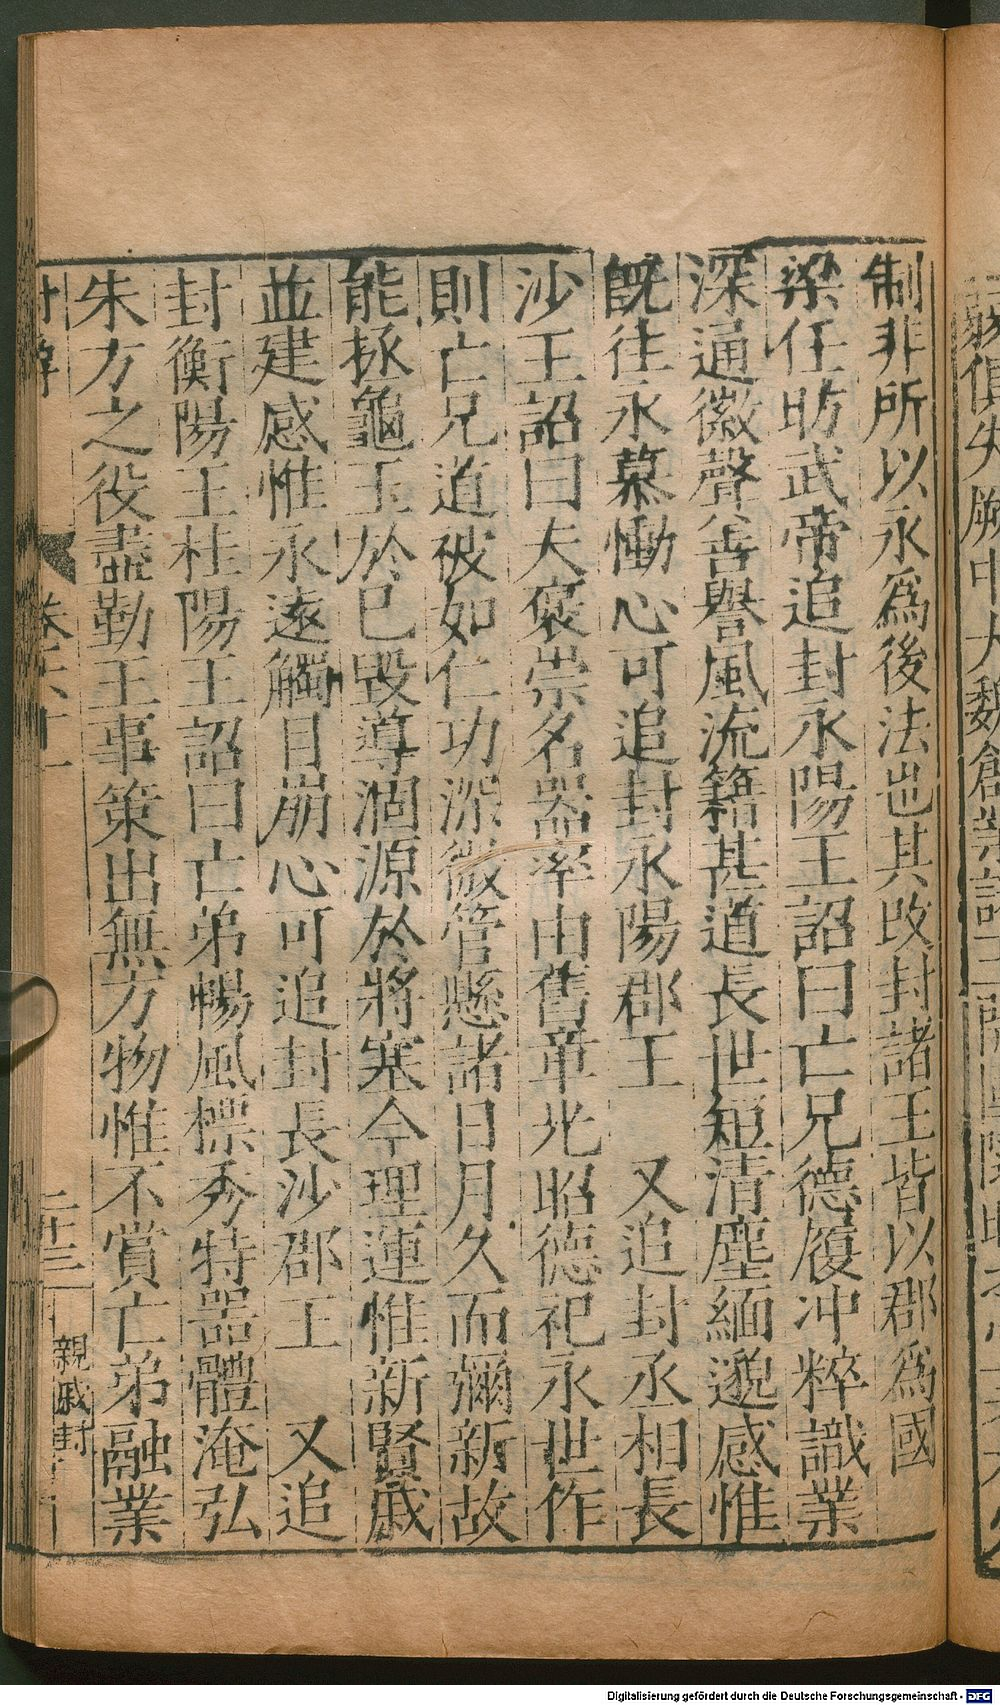 制非所以永爲後法也其改封諸王皆以郡爲國
梁任昉武帝追封永陽王詔曰亡兄德履冲粹識業
深通徽聲善譽風流籍甚道長世短清塵緬邈感惟
旣往永慕慟心可追封永陽郡王　又追封丞相長
沙王詔曰夫褒崇名器率由舊章光昭德祀永世作
則亡兄道被如仁功深微管懸諸日月久而彌新故
能拯龜玉於已毀導涸源於將塞今理運惟新賢戚
並建感惟永遠觸目崩心可追封長沙郡王　又追
封衡陽王桂陽王詔曰亡弟暢風標秀特器體淹弘
朱方之役盡勤王事策出無方物惟不賞亡弟融業
卷五十一
二十三
親戚封
Digitalisierung gefördert durch die Deutsche Forschungsgemeinschaft - DFG